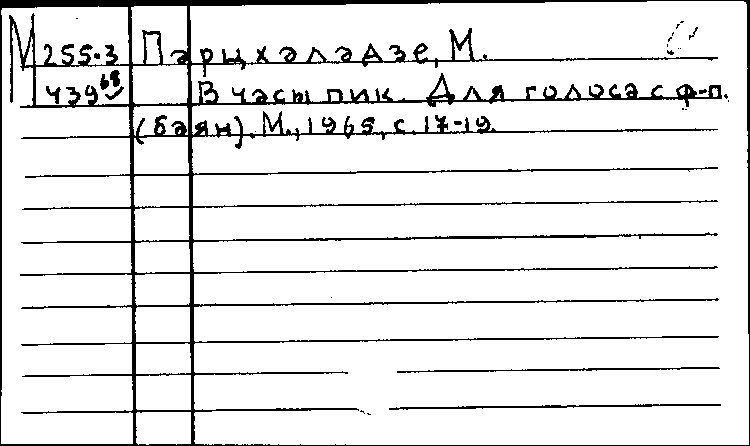 М 255-3 Парцхаладзе, М.
439 68 В час пик. Для голоса с ф-п.
(баян). М., 1965, с. 17-19.